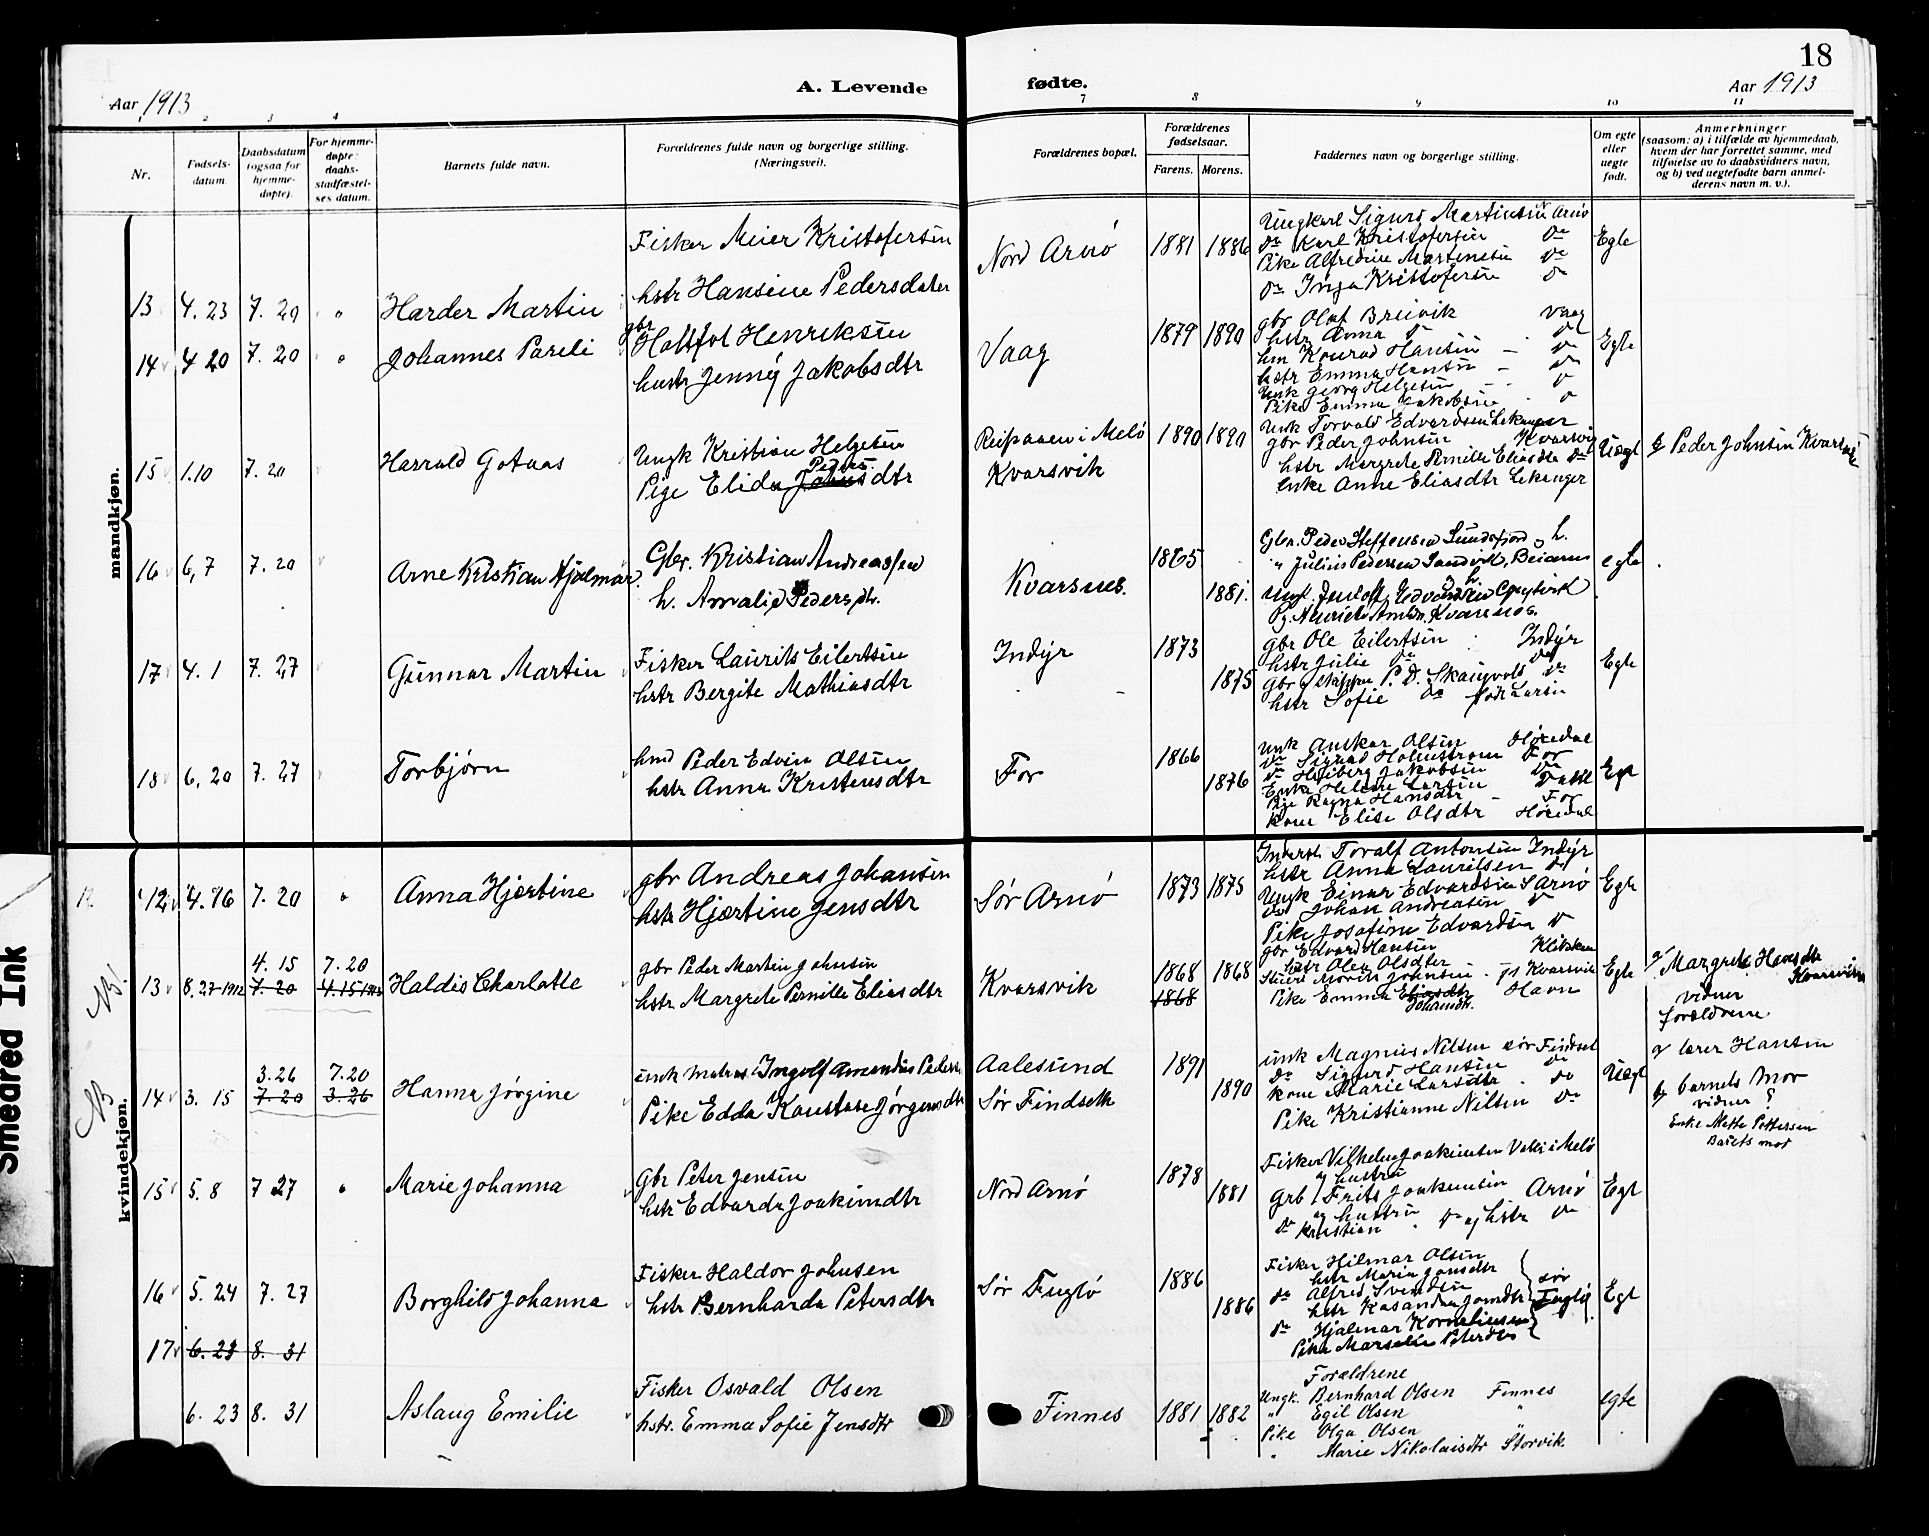 18
A. Levende fødte.
Aar 1913
Aar 1913
1 2 3 4 7 8 9 10 11
Nr.
Fødsels-
datum.
Daabsdatum
(ogsaa for
hjemme-
døpte).
For hjemme-
døpte:
daabs-
stadfæstel-
ses datum.
Barnets fulde navn.
Forældrenes fulde navn og borgerlige stilling.
(Næringsvei).
Forældrenes bopæl.
Forældrenes
fødselsaar.
Farens. Morens.
Faddernes navn og borgerlige stilling.
Om egte
eller
uegte
født.
Anmerkninger
(saasom: a) i tilfælde av hjemmedaab,
hvem der har forrettet samme, med
tilføielse av to daabsvidners navn,
og b) ved uegtefødte barn anmel-
derens navn m. v.).
mandkjøn.
13 4. 23 7. 20 " Harder Martin
Fisker Meier Kristofersen
hstr Hansine Pedersdater
Nord Arnö 1881 1886
Ungkarl Sigurd Martinsen N Arnö
Do Karl Kristofersen Do
Pike Alfredine Martinsen Do
Do Inga Kristofersen Do
Egte
14 4 20 7. 20 " Johannes Pareli
gbr
Henriksen
hustr Jenny Jakobsdtr
Vaag 1879 1890
gbr Olaf Breivik Vaag
hstr Anna D D
hm Konrad Hansen - D
hstr Emma Hansen - D
Unk Georg Helgesen - D
Pike Emma Jakobsen D
Egte
15 1.10 7. 20 Harrald Gotaas
Ungk Kristian Helgesen
Peders
Pige Elida Johnsdtr
i Melö 1890 1890
Kvarsvik
Unk Torvald Edvardsen Lekanger
gbr Peder Johnsen Kvarsvig
hstr Margrete Pernille Eliasdtr Do
Enke Anne Eliasdtr Lekanger
Uegt
Peder Johnsen Kvarsvik
16 6,7 7. 20 Arne Kristian Hjalmar
Gbr. Kristian Andreassen
h. Amalie Pedersdtr.
Kvarsnes. 1865
1881.
Gbr. Peder Steffensen Sundsfjord og h.
" Julius Pedersen Sandvik, Beiarn
og h.
Edvardsen
egte
17 4. 1 7. 27 Gunnar Martin
Fisker Laurits Eilertsen
hstr Bergite Mathiasdtr
Indyr 1873
1875
gbr Ole Eilertsen Indyr
hstr Julie Do Do
Gbr og skipper P. D. Skaugvold Do
hstr Sofie Do
Egte
18 6, 20 7. 27 Torbjørn
hmd Peder Edvin Olsen
hstr Anna Kristensdtr
For 1866
1876
Unk Anskar Olsen
Do Sigurd Holmstrøm For
Do Heiberg Jakobsen Do
Enke Helene Larsen
Pige Ragna Hansdtr - For
Kone Elise Olsdtr
Egt
kvindekjøn.
12 4. 16 7. 20 " Anna Hjertine
gbr Andreas Johansen
hstr Hjærtine Jensdtr
Sør Arnö 1873 1875
Inderst Toralf Antonsen Indyr
hstr Anna Lauritsen D
Ungk Einar Edvardsen S Arnö
Do Johan Andreasen D
Pike Josefine Edvardsen D
Egte
NB!
4. 15 7. 20
13 8. 27 1912 7. 20 4. 15 1913 Haldis Charlotte
gbr Peder Martin Johnsen
hstr Margrete Pernille Eliasdtr
Kvarsvik 1868 1868
1868
gbr Edvard Hansen
hstr Olea Olsdter
Johnsen Kvarsvik
Pike Emma Eliasdtr Havn
Johansdtr.
Egte
Margrete Hansdtr
Kvarsviken
vidner
forældrene
NB
3.26 7.20
14 3. 15 7. 20 3. 26 Hanna Jørgine
unk matros Ingolf Amandus Peders
Pike Edda Konstanse Jørgensdtr
Aalesund 1891
Sør Findseth 1890
unk Magnus Nilsen sør Findset
Do Sigurd Hansen Do
Kone Marie Larsdtr . Do
Pike Kristianne Nilsen Do
Uegt
lærer Hansen
barnets mor
vidner
Enke Mette Pettersen
Barets mor
15 5. 8 7 27 " Marie Johanna
Gbr Peter Jensen
hstr Edvarda Joakimdtr
Nord Arnö 1878
1881
Fisker Vilhelm Joakimsen i Melö
og hustru
Grb Frits Joakimsen Arnö
og hustru
Do Kristian Do og hstr Do
Egt
16 5. 24 7. 27 Borghild Johanna
Fisker Haldor Johnsen
hstr Bernharda Petersdtr
Sør Fuglö 1886
1886
Fisker Hilmar Olsen
hstr Maria Jonsdtr
Do Alfred Svendsen
hstr Kasandra Jonsdtr
Do Hjalmar Korneliusen
Pike Petersdtr
sør
Fuglö
Egt
17 6. 23 8. 31
6. 23 8. 31 Aslaug Emilie
Fisker Osvald Olsen
hstr. Emma Sofie Jensdtr
Finnes 1881 1882
Forældrene
Ungk. Bernhard Olsen Finnes
" Egil Olsen "
Pike Olga Olsen
" Marie Nikolaisdtr Storvik.
egte
Smeared Ink